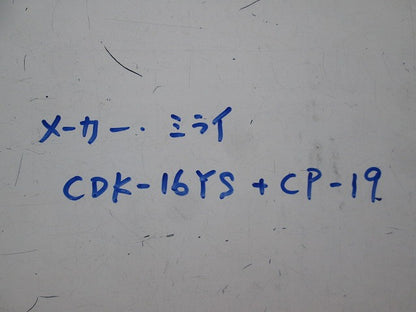 メーカー. ミライ
CDK-16YS + CP-19